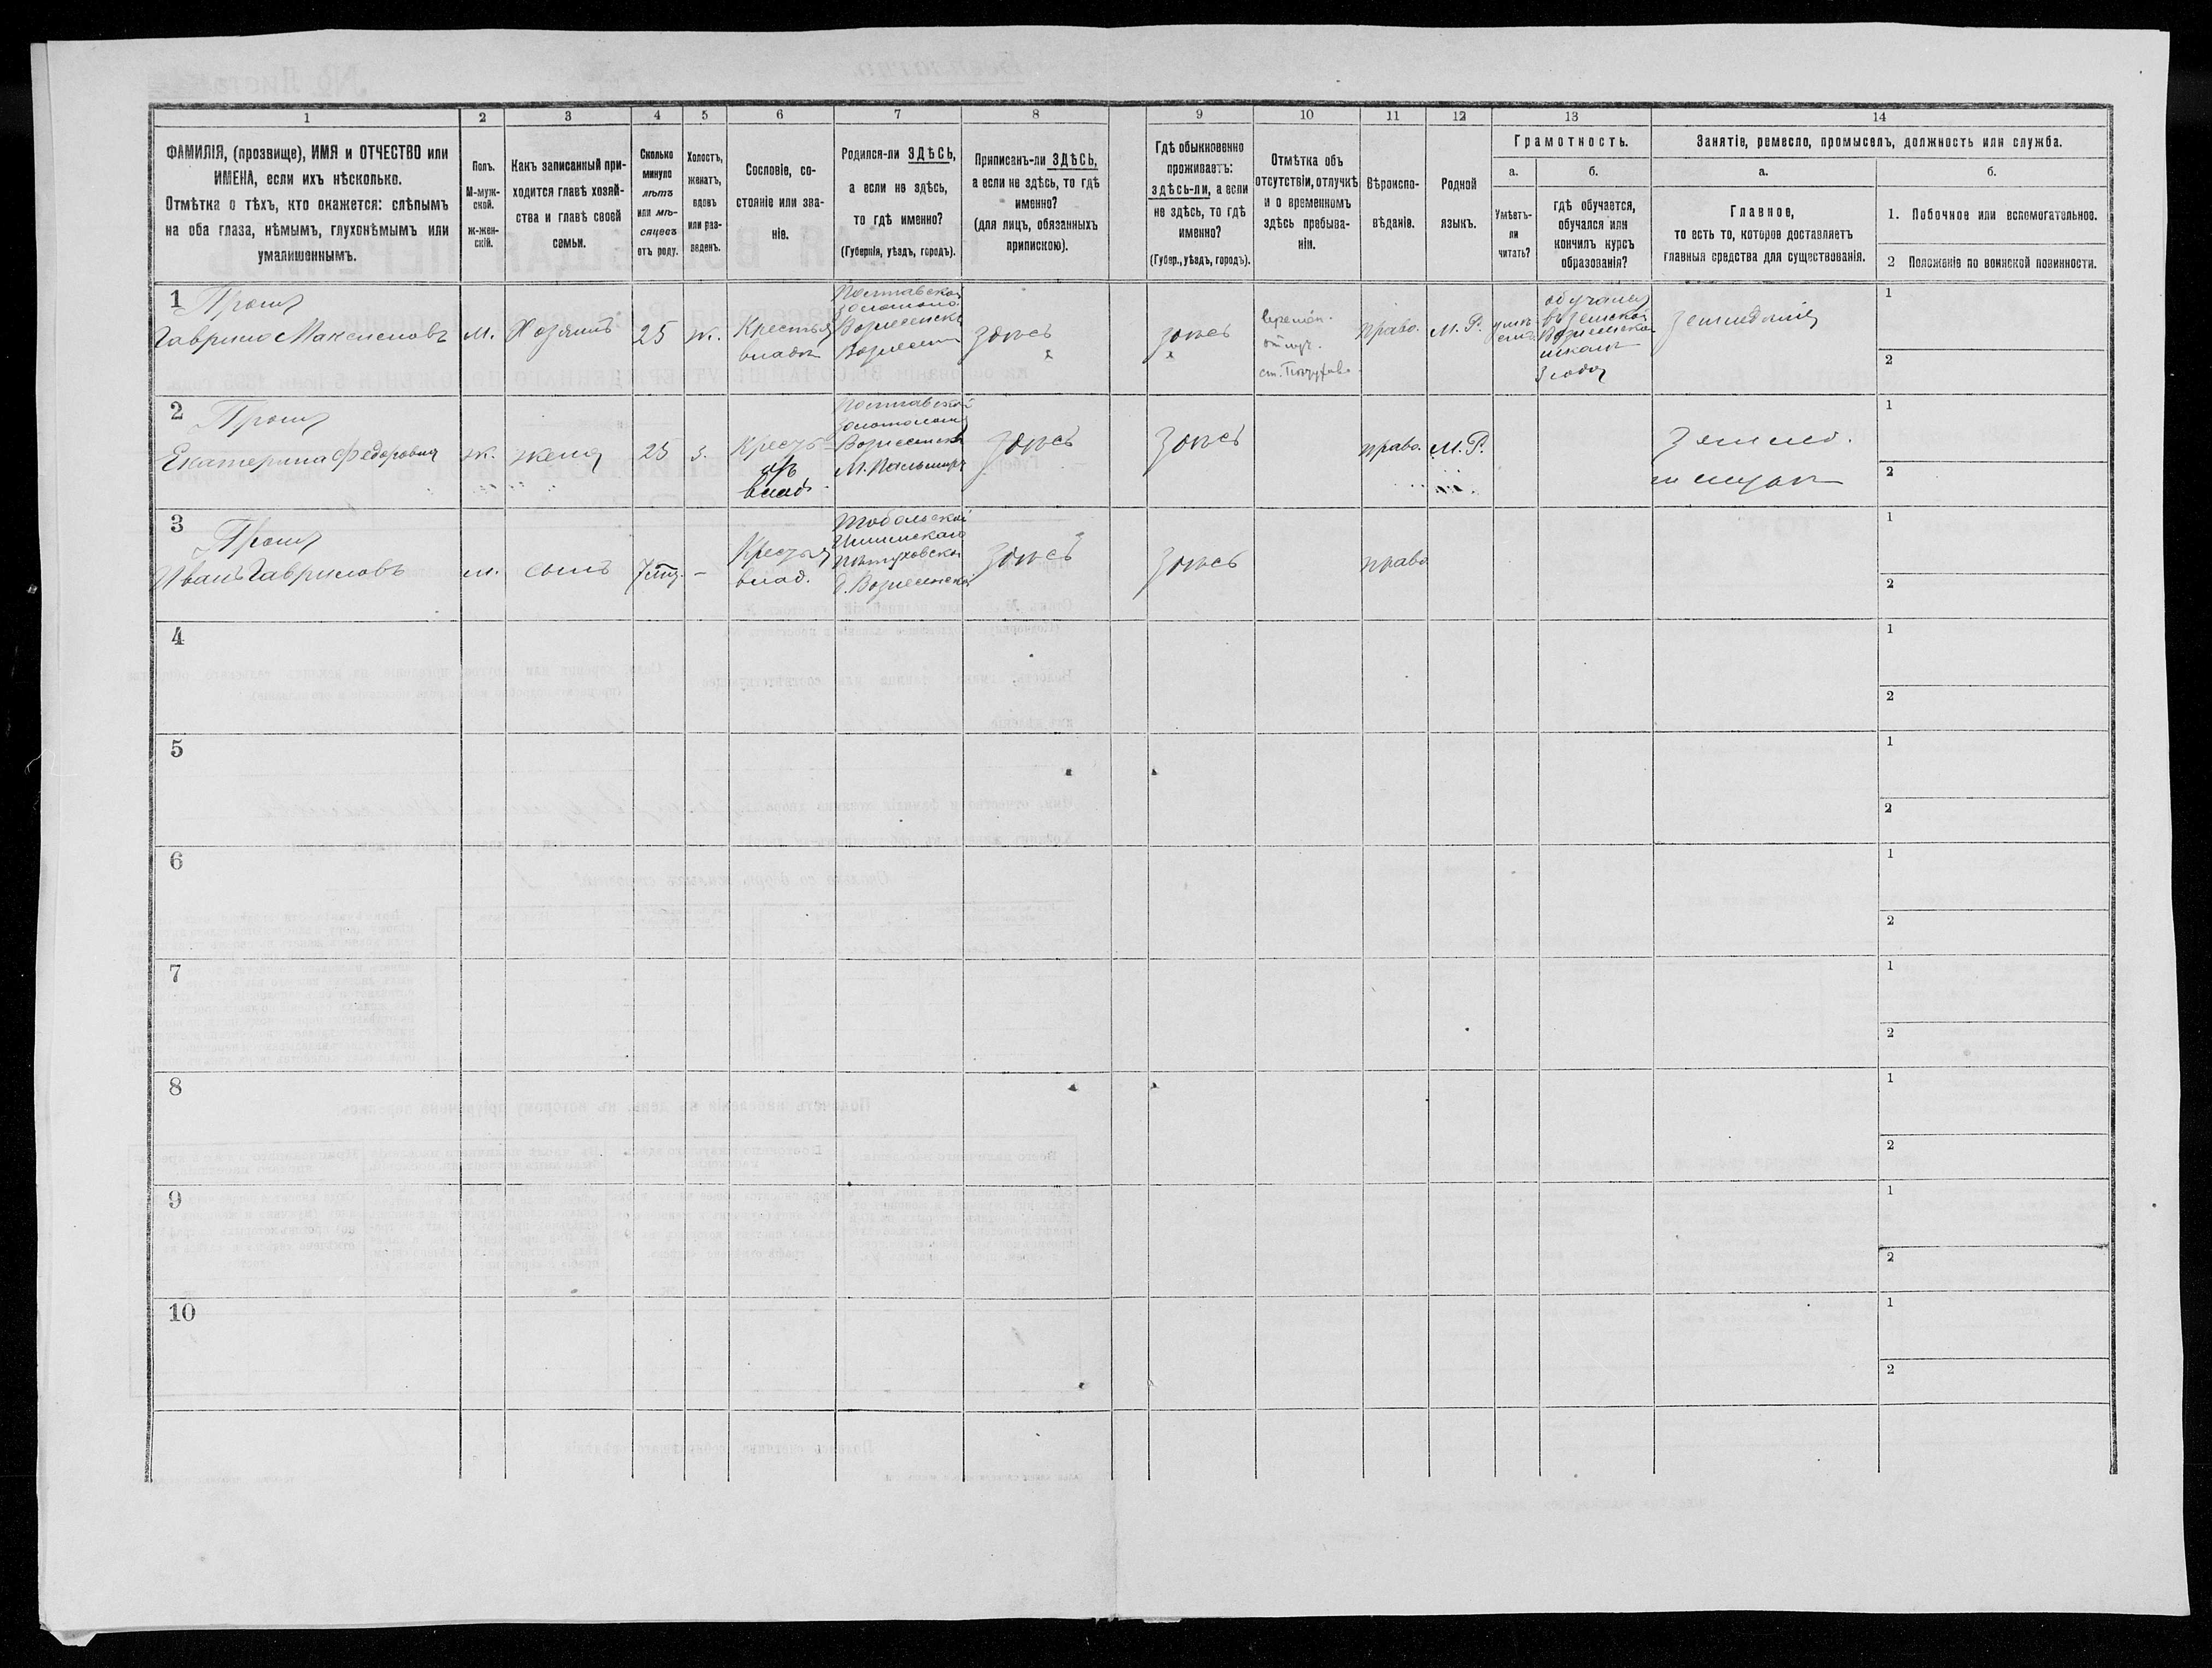 1
2
3
4
5
6
7
8
9
10
11
12
13
14
ФАМИЛІЯ, (прозвище), ИМЯ и ОТЧЕСТВО или
ИМЕНА, если ихъ нѣсколько.
Отмѣтка о тѣхъ, кто окажется: слѣпымъ
на оба глаза, нѣмымъ, глухонѣмымъ или
умалишеннымъ.
Полъ.
М-муж-
ской.
ж-жен-
скій.
Какъ записанный при-
ходится главѣ хозяй-
ства и главѣ своей
семьи.
Сколько
минуло
лѣтъ
или мѣ-
сяцевъ
отъ роду.
Холостъ,
женатъ,
вдовъ
или раз-
веденъ.
Сословіе, со-
стояніе или зва-
ніе.
Родился-ли ЗДѢСЬ,
а если не здѣсь,
то гдѣ именно?
(Губернія, уѣздъ, городъ).
Приписанъ-ли ЗДѢСЬ,
а если не здѣсь, то гдѣ
именно?
(для лицъ, обязанныхъ
припискою).
Гдѣ обыкновенно
проживаетъ:
здѣсь-ли, а если
не здѣсь, то гдѣ
именно?
(Губер., уѣздъ, городъ).
Отмѣтка объ
отсутствіи, отлучкѣ
и о временномъ
здѣсь пребыва-
ніи.
Вѣроиспо-
вѣданіе.
Родной
языкъ.
Грамотность.
а.
Умѣетъ-
ли
читать?
б.
гдѣ обучается,
обучался или
кончилъ курсъ
образованія?
Занятіе, ремесло, промыселъ, должность или служба.
а.
Главное,
то есть то, которое доставляетъ
главныя средства для существованія.
б.
1. Побочное или вспомогательное.
2 Положеніе по воинской повинности.
1
Гаврило Максимовъ
м.
Хозяинъ
25
ж.
Крестья
владѣ
Полтавской
Золотоно
Вознесенск
здѣсь
здѣсь
времен.
отлуч.
право.
М. Р.
обучался
въ земской
Вознесенской
школѣ
3 года
Земледѣліе
1
2
2
Екатерина Федоровна
ж.
жена
25
з.
Крестья
владѣ
Полтавской
Золотонош
Вознесенск
здѣсь
здѣсь
право.
М. Р.
Землед.
при мужѣ
1
2
3
Иванъ Гавриловъ
м.
сынъ
7 мѣс.
–
Крестья
влад.
Тобольской
Ишимскаго
Пѣтуховской
д. Вознесенской
здѣсь
здѣсь
право
1
2
4
1
2
5
1
2
6
1
2
7
1
2
8
1
2
9
1
2
10
1
2